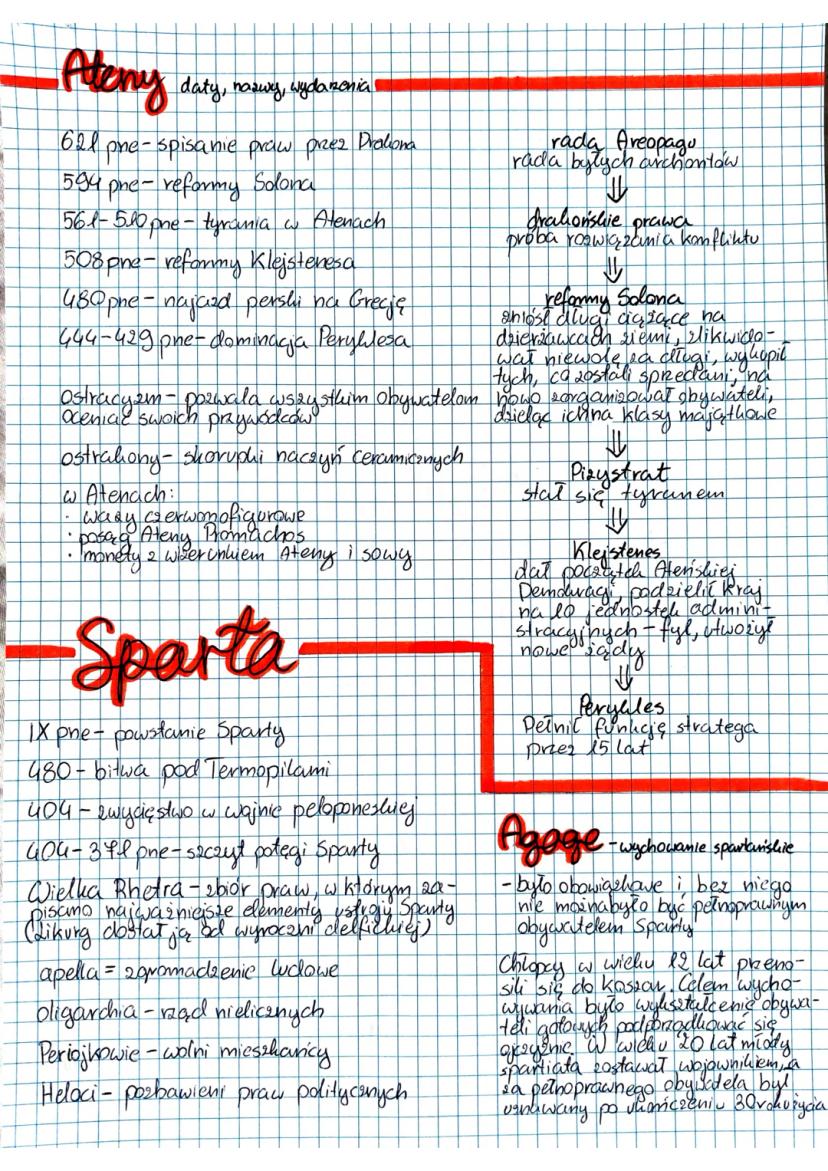 Ateny daty, nazwy, wydarzenia
621 pne - spisanie praw przez Drakona
594 pne - reformy Solona
561-510 pne - tyrania w Atenach
508 pne - reformy Klejstenesa
480 pne - najazd perski na Grecję
444-429 pne - dominacja Peryklesa
ostracyzm - pozwala wszystkim obywatelom
oceniać swoich przywódców
ostrakony - skorupki naczyń ceramicznych
w Atenach:
· wazy czerwonofigurowe
· posąg Ateny Promachos
· monety z wizerunkiem Ateny i sowy
rada Areopagu
rada byłych archontów
⇓
drakońskie prawa
próba rozwiązania konfliktu
⇓
reformy Solona
zniósł długi ciążące na
dzierżawcach ziemi, zlikwido-
wał niewolę za długi, wykupił
tych, co zostali sprzedani, na
nowo zorganizował obywateli,
dzieląc ich na klasy majątkowe
⇓
Pizystrat
stał się tyranem
⇓
Klejstenes
dał początek Ateńskiej
Demokracji, podzielił kraj
na 10 jednostek admini-
stracyjnych - fyl, utwożył
nowe rządy
⇓
Perykles
Pełnił funkcję stratega
przez 15 lat
Sparta
IX pne - powstanie Sparty
480 - bitwa pod Termopilami
404 - zwycięstwo w wojnie peloponeskiej
404-371 pne - szczyt potęgi Sparty
Wielka Rhetra - zbiór praw, w którym za-
pisano najważniejsze elementy ustroju Sparty
(Likurg dostał ją od wyroczni delfickiej)
apella = zgromadzenie ludowe
oligarchia - rząd nielicznych
Periojkowie - wolni mieszkańcy
Heloci - pozbawieni praw politycznych
Agoge - wychowanie spartańskie
- było obowiązkowe i bez niego
nie możnabyło być pełnoprawnym
obywatelem Sparty
Chłopcy w wieku 12 lat przeno-
sili się do koszar. Celem wycho-
wywania było wykształcenie obywa-
teli gotowych podporządkować się
ojczyźnie. W wieku 20 lat młody
spartiata zostawał wojownikiem, a
za pełnoprawnego obywatela był
uznawany po ukończeniu 30 roku życia